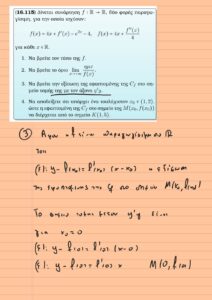 (16.115) Δίνεται συνάρτηση f : ℝ → ℝ, δύο φορές παραγω-
γίσιμη, για την οποία ισχύουν:
f(x) = 4x + f'(x) − e²ˣ − 4, f(x) = 4x + f''(x)/4
για κάθε x ∈ ℝ.
1. Να βρείτε τον τύπο της f.
2. Να βρείτε το όριο lim x→−∞ ημx/f(x).
3. Να βρείτε την εξίσωση της εφαπτομένης της Cf στο ση-
μείο τομής της με τον άξονα y'y.
4. Να αποδείξετε ότι υπάρχει ένα τουλάχιστον x₀ ∈ (1, 2),
ώστε η εφαπτομένη της Cf στο σημείο της M(x₀, f(x₀))
να διέρχεται από το σημείο K(1, 5)
③ Αφού η f είναι παραγωγίσιμη στο ℝ
τότε
(ε): y − f(x₀) = f'(x₀) (x − x₀) η εξίσωση
της εφαπτομένης της Cf στο σημείο M(x₀, f(x₀))
Το σημείο τομής με τον y'y είναι
για x₀ = 0
(ε): y − f(0) = f'(0) (x − 0)
(ε): y − f(0) = f'(0) x M(0, f(0))